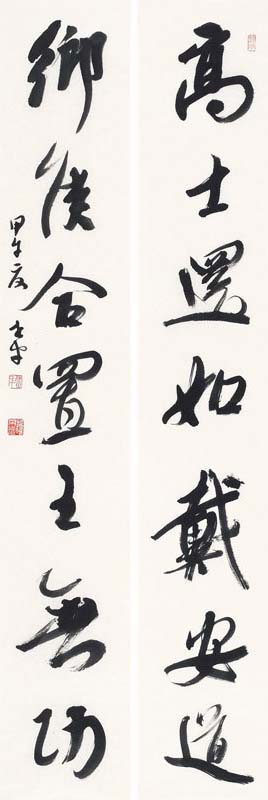 高士還如戴安道
鄉侯合置王無功
甲午夏